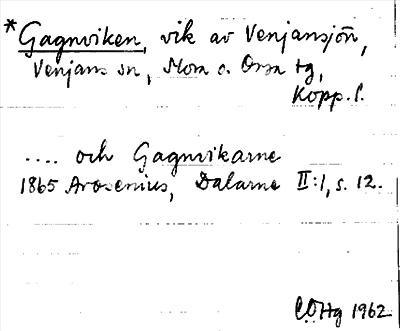 *Gagnviken, vik av Venjansjön,
Venjans sn, Mora o. Orsa tg,
Kopp. l.
.... och Gagnvikarne
1865 Arosenius, Dalarne II:1, s. 12.
COHg 1962